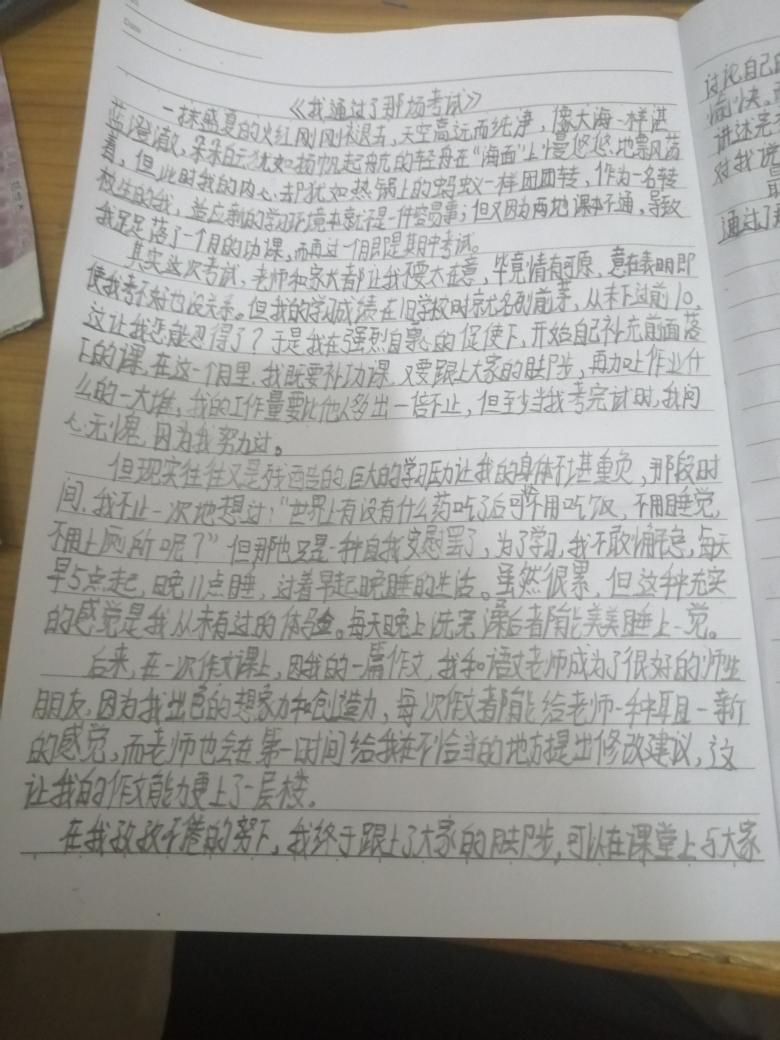 Date
《我通过了那场考试》
一抹盛夏的火红刚刚恢退去,天空高远而纯净,像大海一样湛
蓝澄澈,朵朵白云犹如扬帆起航的轻舟在“海面”上慢悠悠地飘荡
着,但此时我的内心却犹如热锅上的蚂蚁一样团团转,作为一名转
校生的我,适应新的学习环境本就不是一件容易事;但又因为两地课本不通,导致
我足足落了一个月的功课,而再过一个月即是期中考试。
其实这次考试,老师和家长都让我不要太在意,毕竟情有可原,意在表明即
使我考不好也没关系。但我的学习成绩在旧学校时就名列前茅,从未下过前10,
这让我怎能忍得了?于是我在强烈自尊心的促使下,开始自己补充前面落
下的课,在这一个月里,我既要补功课,又要跟上大家的脚步,再加上作业什
么的一大堆,我的工作量要比他人多出一倍不止,但至少当我考完试时,我问
心无愧,因为我努力过。
但现实往往又是残酷的,巨大的学习压力让我的身体不堪重负,那段时
间,我不止一次地想过:“世界上有没有什么药吃了后可以不用吃饭,不用睡觉,
不用上厕所呢?”但那也只是一种自我安慰罢了,为了学习,我不敢懈怠,每天
早5点起,晚11点睡,过着早起晚睡的生活。虽然很累,但这种充实
的感觉是我从未有过的体验。每天晚上洗完澡后都能美美睡上一觉。
后来,在一次作文课上,因我的一篇作文,我和语文老师成为了很好的师生
朋友,因为我出色的想象力和创造力,每次作文都能给老师一种耳目一新
的感觉,而老师也会在第一时间给我在不恰当的地方提出修改建议,这
让我的作文能力更上了一层楼。
在我孜孜不倦的努下,我终于跟上了大家的脚步,可以在课堂上与大家
讨论自己的
愉快。而
讲述完
对我说
通过了